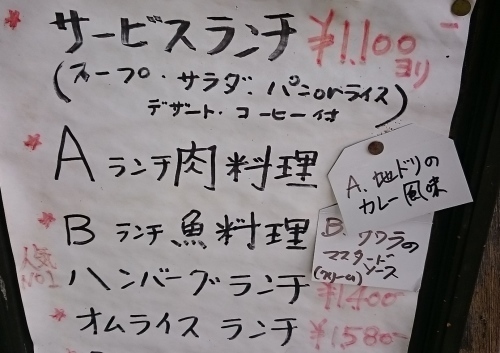 * サービスランチ ¥1,100-
ヨリ
(スープ・サラダ・パンorライス
デザート・コーヒー付)
* Aランチ肉料理
A. 地ドリの
カレー風味
* Bランチ魚料理
B. ワラの
マスタード
ソース
人気
No1
ハンバーグランチ ¥1400-
* オムライスランチ ¥1580-